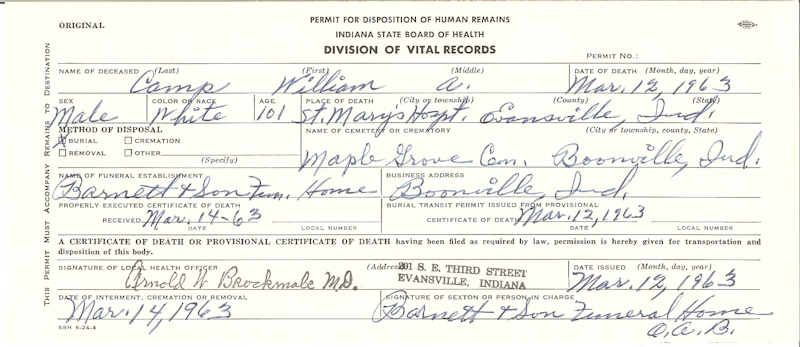 ORIGINAL
PERMIT FOR DISPOSITION OF HUMAN REMAINS
INDIANA STATE BOARD OF HEALTH
DIVISION OF VITAL RECORDS
PERMIT NO.:
THIS PERMIT MUST ACCOMPANY REMAINS TO DESTINATION
NAME OF DECEASED (Last) (First) (Middle) DATE OF DEATH (Month, day, year)
Camp William A. Mar. 12, 1963
SEX COLOR OR RACE AGE PLACE OF DEATH (City or township) (County) (State)
Male White 101 St. Mary's Hospt. Evansville, Ind.
METHOD OF DISPOSAL NAME OF CEMETERY OR CREMATORY (City or township, county, State)
BURIAL CREMATION
REMOVAL OTHER
(Specify)
Maple Grove Cem. Boonville, Ind.
NAME OF FUNERAL ESTABLISHMENT BUSINESS ADDRESS
Barnett & Son Fun. Home Boonville, Ind.
PROPERLY EXECUTED CERTIFICATE OF DEATH BURIAL TRANSIT PERMIT ISSUED FROM PROVISIONAL
RECEIVED Mar. 14-63 CERTIFICATE OF DEATH Mar. 12, 1963
DATE LOCAL NUMBER DATE LOCAL NUMBER
A CERTIFICATE OF DEATH OR PROVISIONAL CERTIFICATE OF DEATH having been filed as required by law, permission is hereby given for transportation and
disposition of this body.
SIGNATURE OF LOCAL HEALTH OFFICER (Address) 201 S. E. THIRD STREET DATE ISSUED (Month, day, year)
Arnold W Brockmole M.D. EVANSVILLE, INDIANA Mar. 12, 1963
DATE OF INTERMENT, CREMATION OR REMOVAL SIGNATURE OF SEXTON OR PERSON IN CHARGE
Mar. 14, 1963 Barnett & Son Funeral Home
SBH 6-24-4 O.A.B.